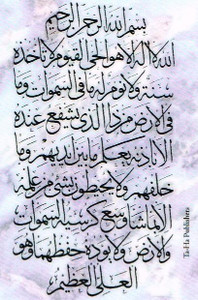 بسم الله الرحمن الرحيم
الله لا اله الا هو الحي القيوم لا تاخذه
سنة ولا نوم له ما في السموات وما
في الارض من ذا الذي يشفع عنده
الا باذنه يعلم ما بين ايديهم وما
خلفهم ولا يحيطون بشيء من علمه
الا بما شاء وسع كرسيه السموات
والارض ولا يؤده حفظهما وهو
العلي العظيم
Ta-Ha Publishers